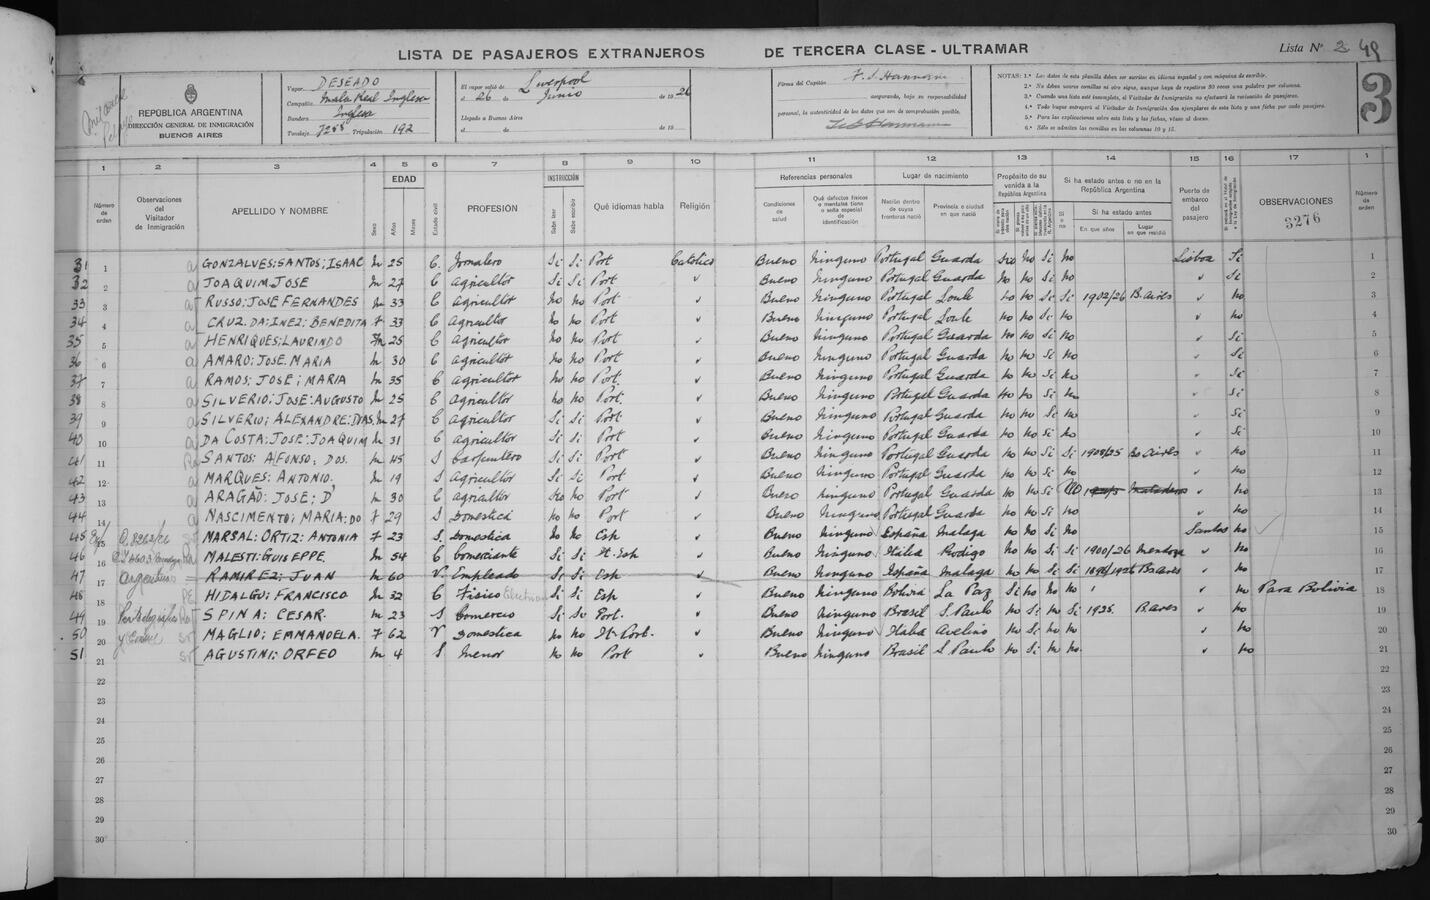 LISTA DE PASAJEROS EXTRANJEROS DE TERCERA CLASE - ULTRAMAR
Lista Nº 2 49
3
REPÚBLICA ARGENTINA
DIRECCIÓN GENERAL DE INMIGRACIÓN
BUENOS AIRES
Vapor DESEADO
Compañía Mala Real Inglesa
Bandera Inglesa
Tonelaje Tripulación 192
El vapor salió de Liverpool
el 26 de Junio de 1926
Llegado a Buenos Aires
el de de 19
Firma del Capitán
asegurando, bajo su responsabilidad
personal, la autenticidad de los datos que son de comprobación posible.
NOTAS: 1.ª Los datos de esta planilla deben ser escritos en idioma español y con máquina de escribir.
2.ª No deben usarse comillas ni otro signo, aunque haya de repetirse 30 veces una palabra por columna.
3.ª Cuando una lista esté incompleta, el Visitador de Inmigración no efectuará la revisación de pasajeros.
4.ª Todo buque entregará al Visitador de Inmigración dos ejemplares de esta lista y una ficha por cada pasajero.
5.ª Para las explicaciones sobre esta lista y las fichas, véase al dorso.
6.ª Sólo se admiten las comillas en las columnas 10 y 15.
1 2 3 4 5 6 7 8 9 10 11 12 13 14 15 16 17 1
Número de orden
Observaciones del Visitador de Inmigración
APELLIDO Y NOMBRE
Sexo
EDAD
Años
Meses
Estado civil
PROFESIÓN
INSTRUCCIÓN
Sabe leer
Sabe escribir
Qué idiomas habla
Religión
Referencias personales
Condiciones de salud
Qué defectos físicos o mentales tiene o seña especial de identificación
Lugar de nacimiento
Nación dentro de cuyas fronteras nació
Provincia o ciudad en que nació
Propósito de su venida a la República Argentina
Si ha estado antes o no en la República Argentina
Si o no
Si ha estado antes
En que años
Lugar en que residió
Puerto de embarco del pasajero
OBSERVACIONES
3276
Número de orden
31 1 GONZALVES; SANTOS; ISAAC M 25 C. Jornalero Si Si Port Católico Bueno Ninguno Portugal Guarda no Si no Lisboa Si 1
32 2 JOAQUIM JOSE M 27 C Agricultor Si Si Port Bueno Ninguno Portugal Guarda no no Si no Si 2
33 3 RUSSO; JOSE FERNANDES M 33 C Agricultor no no Port. Bueno Ninguno Portugal Loule no no Si Si 1902/26 B. Aires no 3
34 4 CRUZ. DA; INEZ; BENEDITA F 33 C Agricultor no no Port Bueno Ninguno Portugal Loule no no Si no no 4
35 5 HENRIQUES; LAURINDO M 25 C Agricultor no no Port Bueno Ninguno Portugal Guarda no no Si no Si 5
36 6 AMARO; JOSE. MARIA M 30 C Agricultor no no Port Bueno Ninguno Portugal Guarda no no Si no Si 6
37 7 RAMOS; JOSE; MARIA M 35 C Agricultor no no Port. Bueno Ninguno Portugal Guarda no no Si no Si 7
38 8 SILVERIO; JOSE: AUGUSTO M 25 C Agricultor no no Port. Bueno Ninguno Portugal Guarda no no Si no Si 8
39 9 SILVERIO; ALEXANDRE: DIAS. M 27 C Agricultor Si Si Port Bueno Ninguno Portugal Guarda no no Si no Si 9
40 10 DA COSTA; JOSE: JOAQUIM M 31 C Agricultor Si Si Port Bueno Ninguno Portugal Guarda no no Si no Si 10
41 11 SANTOS: AFONSO; DOS. M 45 S Carpintero Si Si Port Bueno Ninguno Portugal Guarda no no Si Si 1908/25 Bs Aires no 11
42 12 MARQUES; ANTONIO. M 19 S Agricultor Si Si Port Bueno Ninguno Portugal Guarda no no Si no no 12
43 13 ARAGÃO; JOSE; D' M 30 C Agricultor no no Port Bueno Ninguno Portugal Guarda no no Si NO no 13
44 14 NASCIMENTO; MARIA: DO F 29 S Domestica no no Port Bueno Ninguno Portugal Guarda no no Si no no 14
45 15 MARSAL: ORTIZ: ANTONIA F 23 S. Domestica no no Esp Bueno Ninguno España Malaga no no Si no Santos no 15
46 16 MALESTI: GUISEPPE. M 54 C Comerciante Si Si It-Esp Bueno Ninguno Italia Rodigo no no Si Si 1900/26 Mendoza no 16
47 17 Argentino RAMIREZ; JUAN M 60 V. Empleado Si Si Esp Bueno Ninguno España Malaga no no Si Si 1896/1926 Bs Aires no 17
48 18 HIDALGO; FRANCISCO M 32 C Fisico Si Si Esp Bueno Ninguno Bolivia La Paz Si no no no no Para Bolivia 18
49 19 SPINA; CESAR. M 23 S Comercio Si Si Port. Bueno Ninguno Brasil S. Paulo no Si no Si 1925. B. aires no 19
50 20 MAGLIO; EMMANOELA. F 62 V Domestica no no It-Port. Bueno Ninguno Italia Avelino no Si no no no 20
51 21 AGUSTINI: ORFEO M 4 S Menor no no Port Bueno Ninguno Brasil S Paulo no Si no no no 21
22 22
23 23
24 24
25 25
26 26
27 27
28 28
29 29
30 30